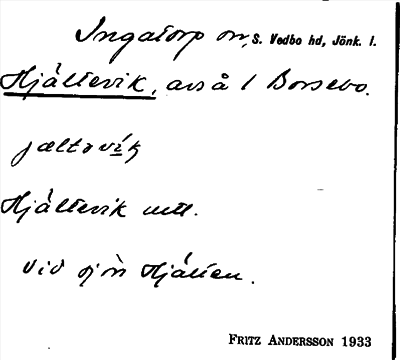 Ingatorp sn, S. Vedbo hd, Jönk. l.
Hjältevik, avs å 1 Borsebo.
jæltəvík
Hjältevik utt.
Vid sjön Hjälten.
FRITZ ANDERSSON 1933